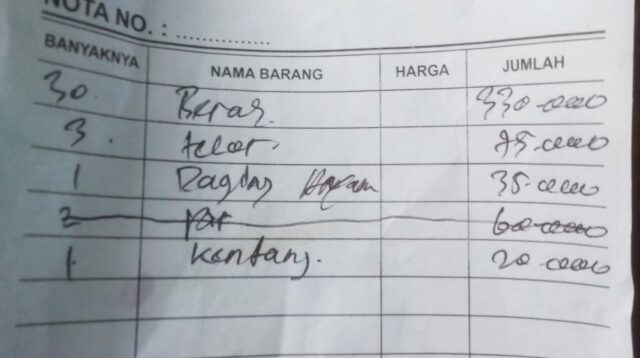 NOTA NO. : ................
BANYAKNYA NAMA BARANG HARGA JUMLAH
30. Beras. 330.000
3. telor. 75.000
1 Daging Ayam 35.000
2 60.000
1. Kentang. 20.000